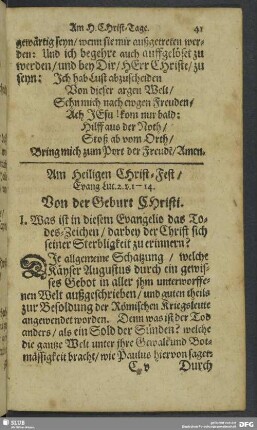 Am H. CHrist-Tage. 41
gewärtig seyn/ wenn sie mir außgetreten wer-
den: Und ich begehre auch auffgelöset zu
werden/ und bey Dir/ HErr CHriste/ zu
seyn: Ich hab Lust abzuscheiden
Von dieser argen Welt/
Sehn mich nach ewgen Freuden/
Ach JEsu! kom nur bald:
Hilff aus der Noth/
Stoß ab vom Orth/
Bring mich zum Port der Freudē/ Amen.
Am Heiligen CHrist-Fest/
Evang Luc. 2. v. 1-14.
Von der Geburt CHristi.
I. Was ist in diesem Evangelio das To-
des-Zeichen/ darbey der Christ sich
seiner Sterbligkeit zu erinnern?
DIe allgemeine Schatzung/ welche
Käyser Augustus durch ein gewis-
ses Gebot in aller ihm unterworffe-
nen Welt außgeschrieben/ und guten theils
zur Besoldung der Römischen Kriegsleute
angewendet worden. Denn was ist der Tod
anders/ als ein Sold der Sünden? welche
die gantze Welt unter ihre Gewalt und Bot-
mässigkeit bracht/ wie Paulus hiervon saget:
C v Durch
SLUB
DFG